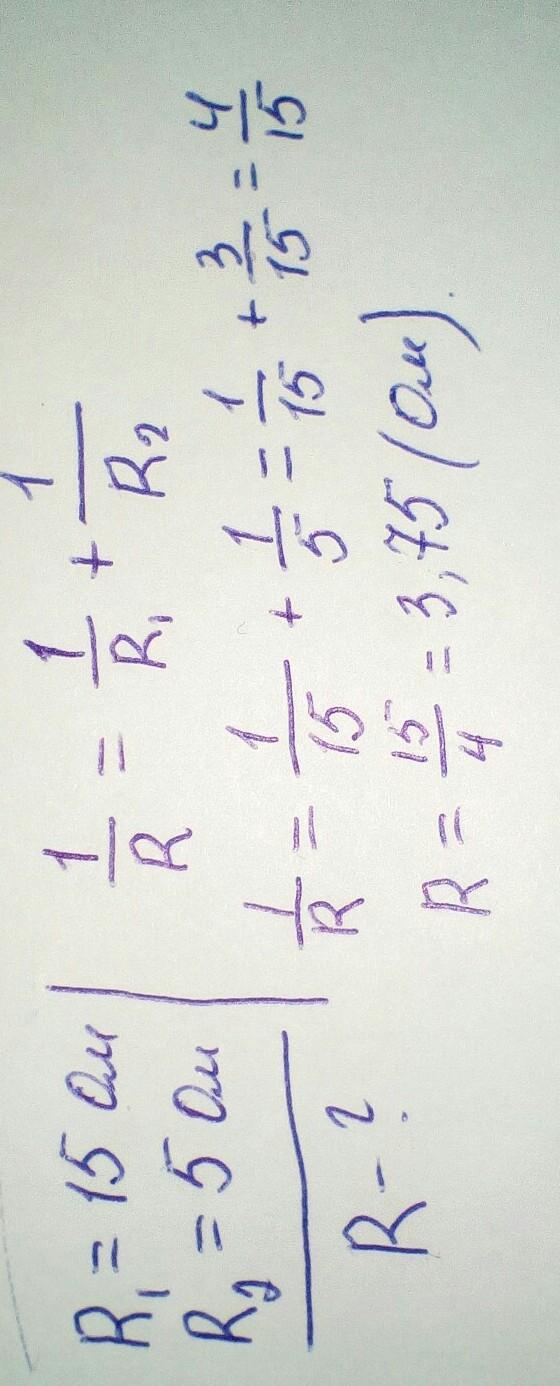 R₁ = 15 Ом
R₂ = 5 Ом
R - ?
1/R = 1/R₁ + 1/R₂
1/R = 1/15 + 1/5 = 1/15 + 3/15 = 4/15
R = 15/4 = 3,75 (Ом).